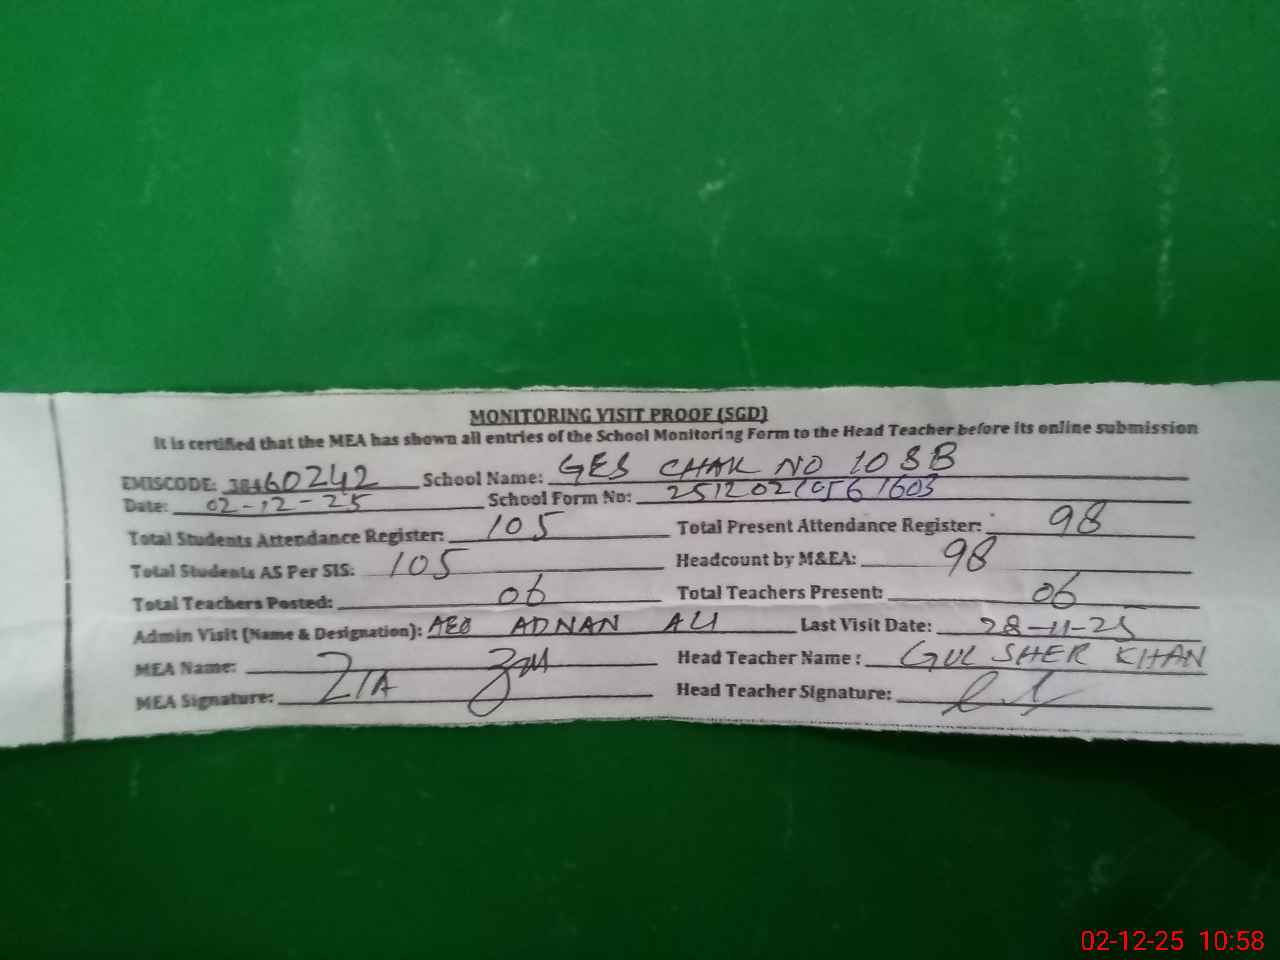 MONITORING VISIT PROOF (SGD)
It is certified that the MEA has shown all entries of the School Monitoring Form to the Head Teacher before its online submission
EMISCODE: 38460242 School Name: GES CHAK NO 10 SB
Date: 02-12-25 School Form No: 2512021056 1603
Total Students Attendance Register: 105 Total Present Attendance Register: 98
Total Students AS Per SIS: 105 Headcount by M&EA: 98
Total Teachers Posted: 06 Total Teachers Present: 06
Admin Visit (Name & Designation): AEO ADNAN ALI Last Visit Date: 28-11-25
MEA Name: Head Teacher Name: GUL SHER KHAN
MEA Signature: ZIA Head Teacher Signature:
02-12-25 10:58